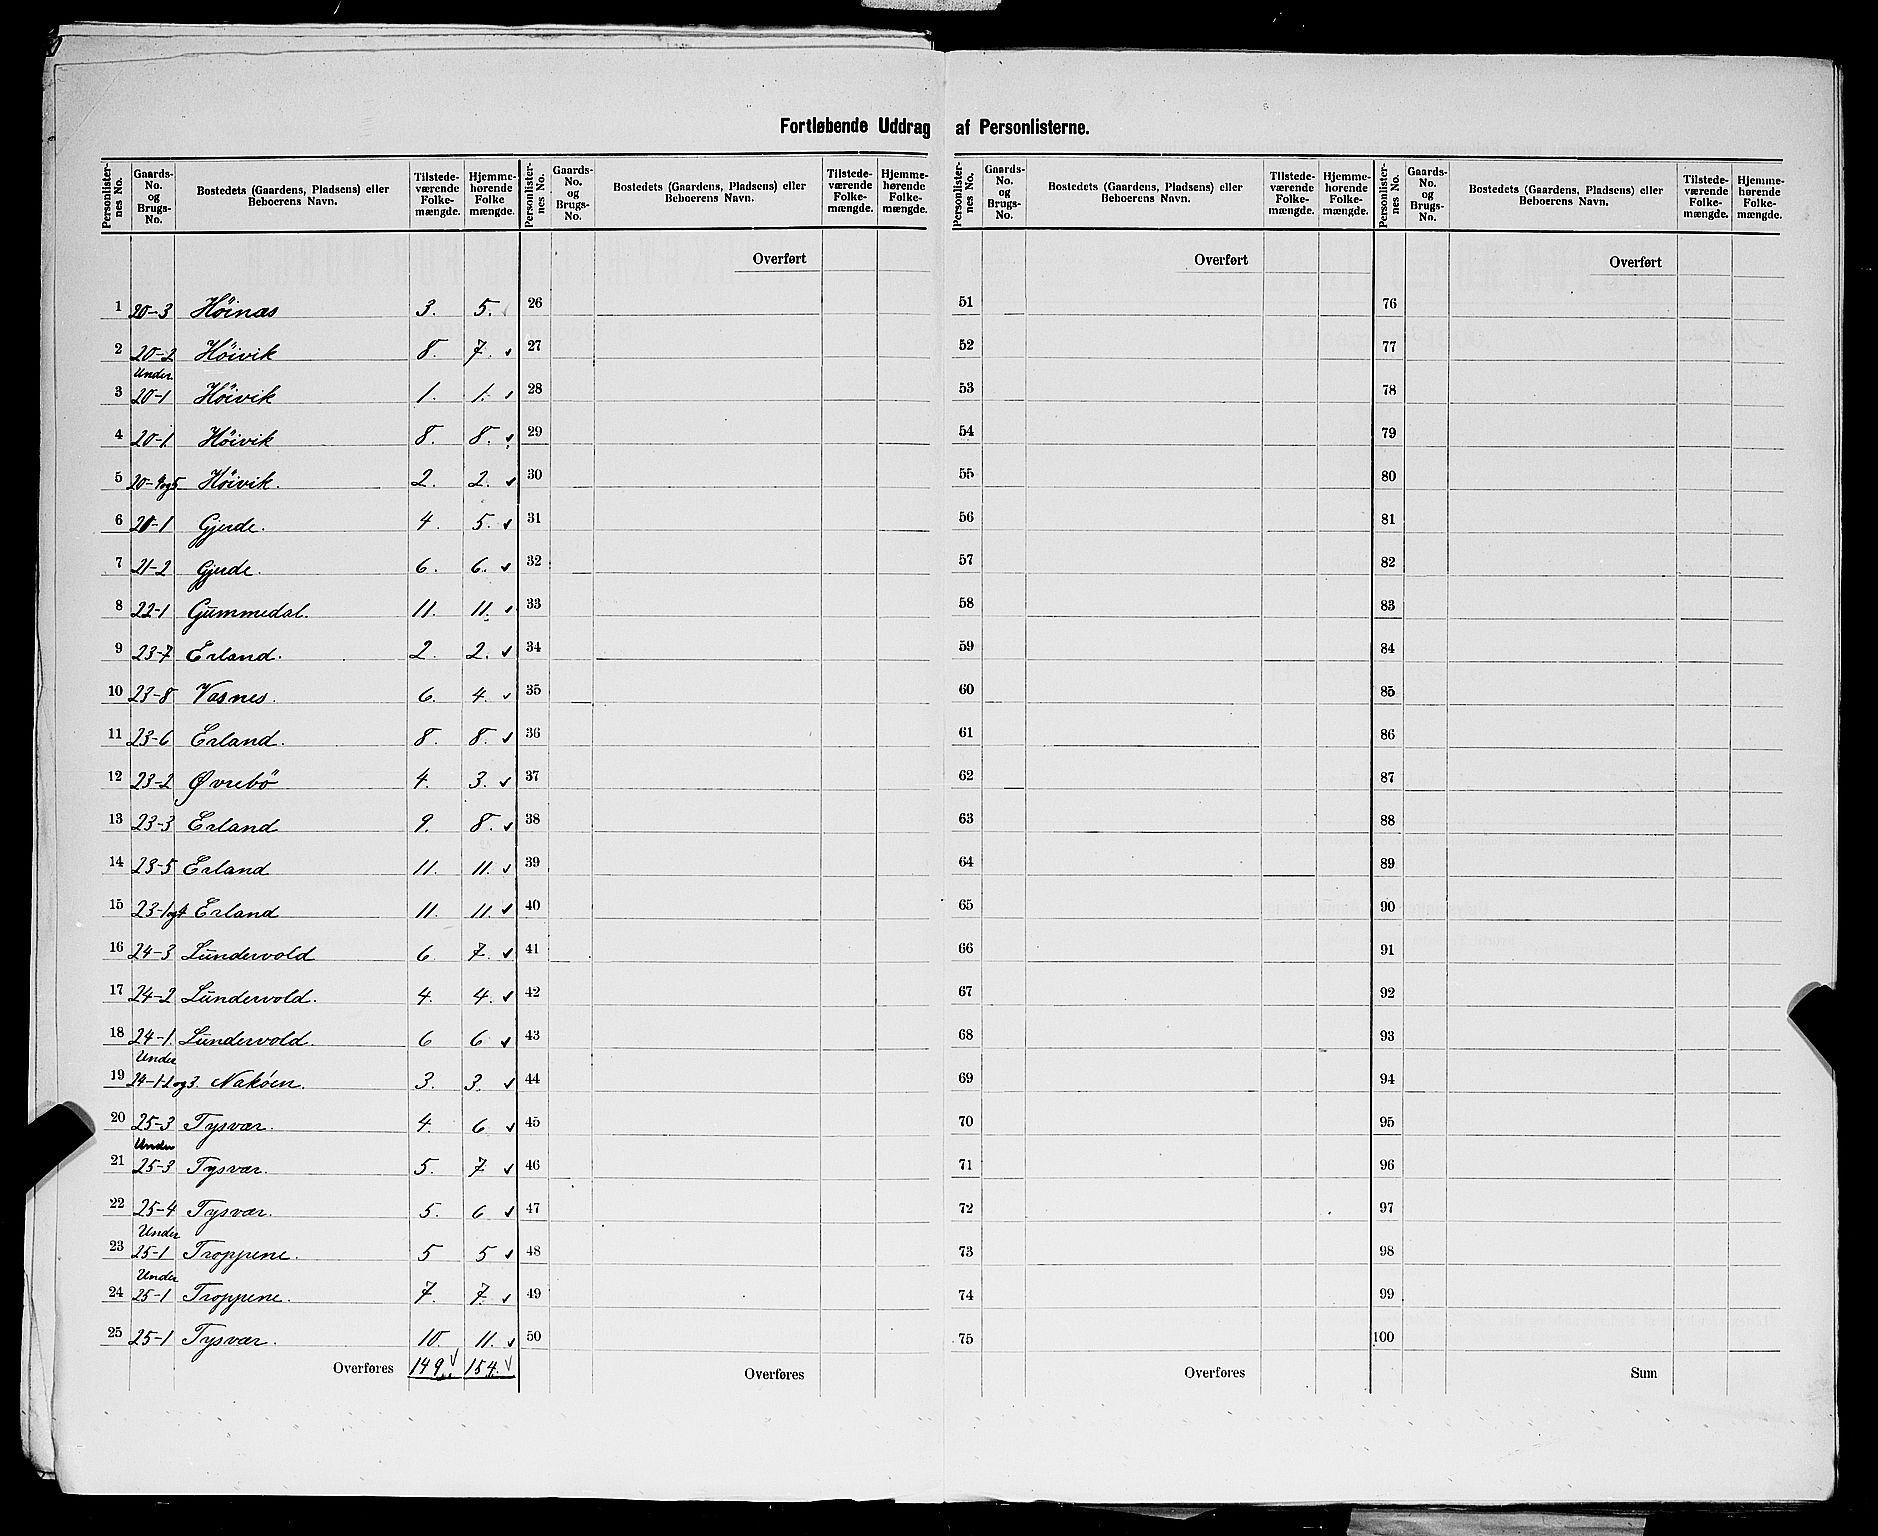 Fortløbende Uddrag af Personlisterne.
Personlister-nes No. Gaards-No. og Brugs-No. Bostedets (Gaardens, Pladsens) eller Beboerens Navn. Tilstede-værende Folke-mængde. Hjemme-hørende Folke mængde. Personlister-nes No. Gaards-No. og Brugs-No. Bostedets (Gaardens, Pladsens) eller Beboerens Navn. Tilstede-værende Folke-mængde. Hjemme-hørende Folke-mængde. Personlister-nes No. Gaards-No. og Brugs-No. Bostedets (Gaardens, Pladsens) eller Beboerens Navn. Tilstede-værende Folke-mængde. Hjemme-hørende Folke-mængde. Personlister-nes No. Gaards-No. og Brugs-No. Bostedets (Gaardens, Pladsens) eller Beboerens Navn. Tilstede-værende Folke-mængde. Hjemme-hørende Folke-mængde.
Overført Overført Overført
1 20-3 Höinæs 3. 5. 26 51 76
2 20-2 Höivik 8. 7. 27 52 77
Under
3 20-1 Höivik 1. 1. 28 53 78
4 20-1. Höivik 8. 8. 29 54 79
5 20-4og5 Höivik. 2. 2. 30 55 80
6 21-1 Gjerde. 4. 5. 31 56 81
7 21-2 Gjerde. 6. 6. 32 57 82
8 22-1 Gummedal. 11. 11. 33 58 83
9 23-7 Erland. 2. 2. 34 59 84
10 23-8 Vasnes. 6. 4. 35 60 85
11 23-6 Erland. 8. 8. 36 61 86
12 23-2 Øvrebö 4. 3. 37 62 87
13 23-3 Erland 9. 8. 38 63 88
14 23-5 Erland 11. 11. 39 64 89
15 23-1og4 Erland 11. 11. 40 65 90
16 24-3 Lundervold 6. 7. 41 66 91
17 24-2 Lundervold. 4. 4. 42 67 92
18 24-1. Lundervold. 6 6 43 68 93
Under
19 24-1-2og3. Naköen. 3. 3. 44 69 94
20 25-3 Tysvær. 4. 6 45 70 95
Under
21 25-3 Tysvær. 5. 7. 46 71 96
22 25-4 Tysvær. 5. 6 47 72 97
Under
23 25-1 Troppene. 5 5 48 73 98
Under
24 25-1 Troppene. 7. 7. 49 74 99
25 25-1 Tysvær. 10. 11. 50 75 100
Overføres 149. 154. Overføres Overføres Sum